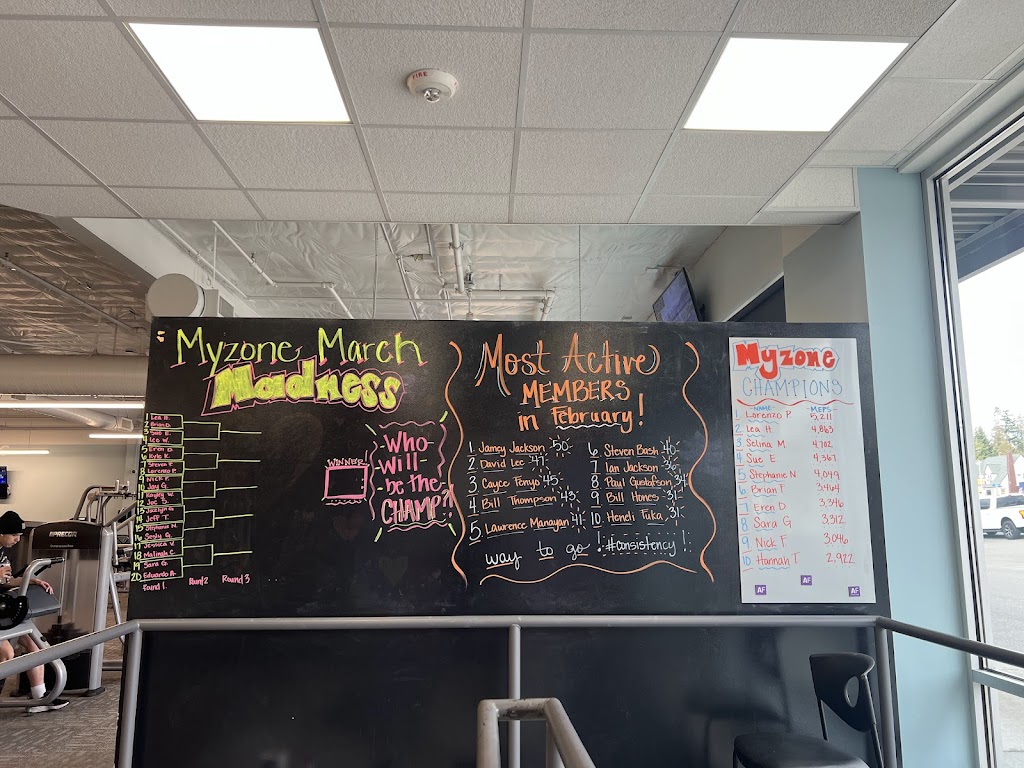 FIRE
Myzone March
Madness
1 Lea H.
2 Brian D.
3 Sue E.
4 Leo W.
5 Eren D.
6 Kyle K.
7 Steven F.
8 Lorenzo P.
9 Nick F.
10 Jay G.
11 Kayley W.
12 Joe S.
13 Jocelyn G.
14 Jeff T.
15 Stephanie N.
16
17 Jessica V.
18 Malinah C.
19 Sara G.
20 Eduardo A.
Round 1
Round 2
Round 3
WINNER
Who
-will-
-be the-
CHAMP?!
Most Active
MEMBERS
in February!
1. Jamey Jackson -50-
2. David Lee -47-
3 Cayce Fonyo -45-
4. Bill Thompson -43-
5. Lawrence Manayan -41-
6 Steven Bash -40-
7 Ian Jackson -36-
8 Paul Gustafson -34-
9 Bill Hones -31-
10. Hendi Fuka -31-
way to go! #consistency!
Myzone
CHAMPIONS
-NAME- -MEPS-
1 Lorenzo P. 5,211
2 Lea H. 4,863
3 Selina M. 4,702
4 Sue E. 4,367
5 Stephanie N. 4,049
6 Brian T. 3,464
7 Eren D. 3,346
8 Sara G. 3,312
9 Nick F 3,046
10. Hannah T 2,922
AF AF AF
PRECOR